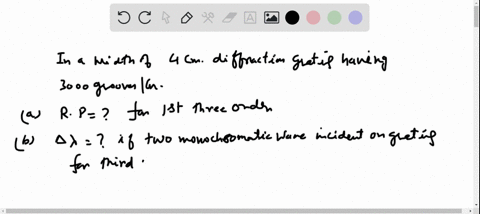 In a width of 4 Cm. diffraction gratig having
3000 grooves/Cm.
(a) R.P = ? for 1st three order
(b) Δλ = ? if two monochromatic wave incident on grating
for third.